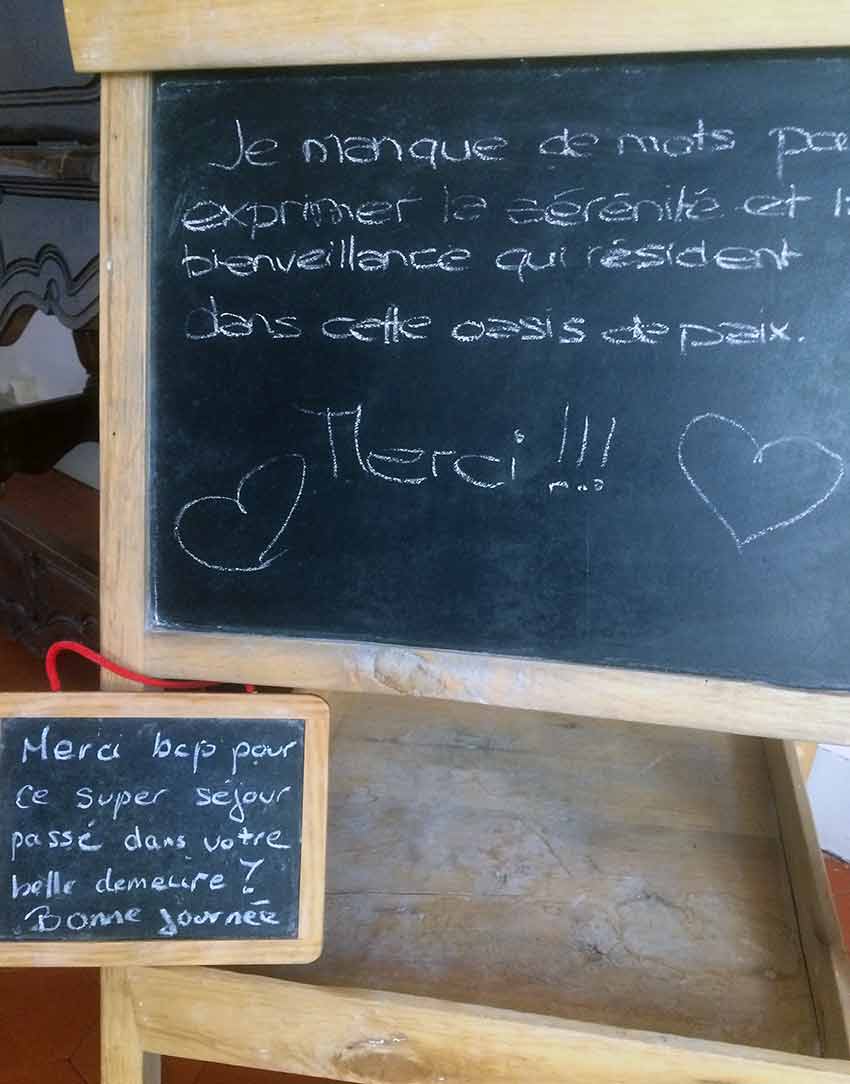 Je manque de mots
exprimer la sérénité et
bienveillance qui résident
dans cette oasis de paix.
Merci !!!
Merci bcp pour
ce super séjour
passé dans votre
belle demeure
Bonne journée